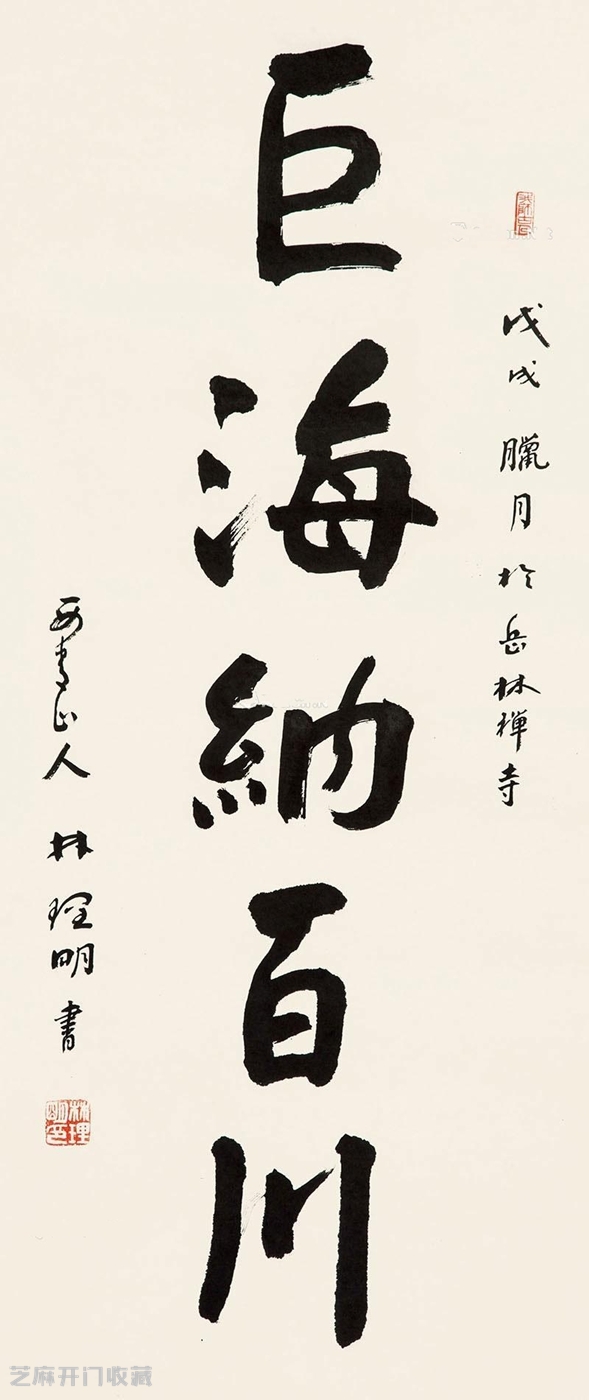 戊戌臘月於岳林禪寺
巨海納百川
青山人 林理明書
林理明印
芝麻开门收藏